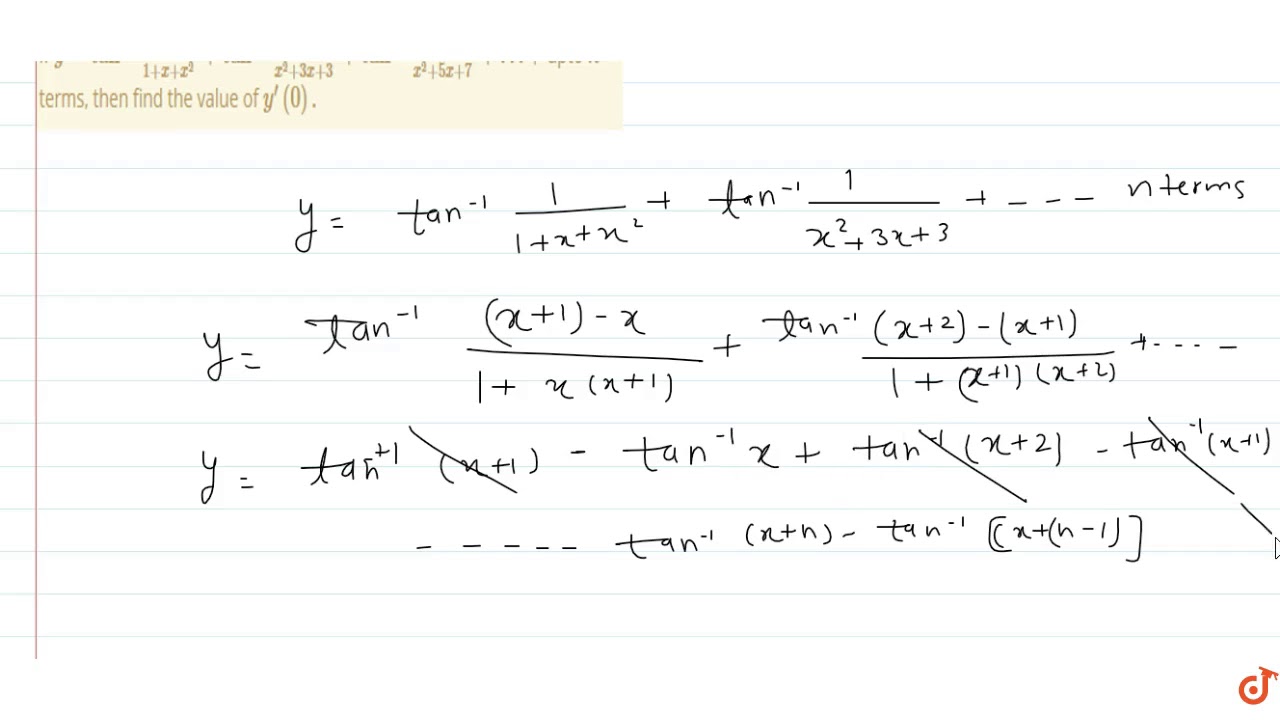 1+x+x² x²+3x+3 x²+5x+7
terms, then find the value of y′ (0) .
y = tan⁻¹ 1/(1+x+x²) + tan⁻¹ 1/(x²+3x+3) + - - - n terms
y = tan⁻¹ ((x+1) - x)/(1 + x (x+1)) + tan⁻¹ ((x+2) - (x+1))/(1 + (x+1) (x+2)) + - - - -
y = tan⁻¹ (x+1) - tan⁻¹ x + tan⁻¹ (x+2) - tan⁻¹ (x+1)
- - - - - tan⁻¹ (x+n) - tan⁻¹ [(x+(n-1)]